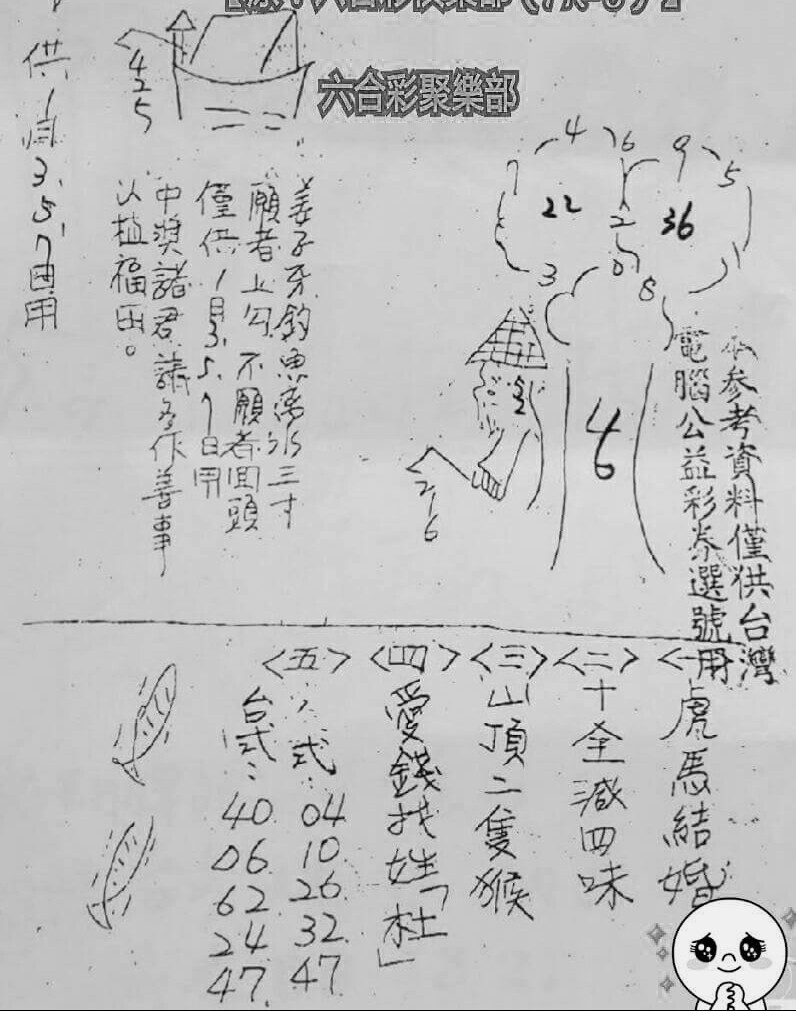 六合彩聚樂部
本參考資料僅供台灣
電腦公益彩券選號用
4
6
9
5
22
2
36
3
0
8
46
216
姜子牙釣魚離水三寸
願者上勾不願者回頭
僅供1月3.5.7日用
中獎諸君請多作善事
以植福田。
425
供1月3.5.7日用
<一>虎馬結婚
<二>十全減四味
<三>山頂二隻猴
<四>愛錢找姓「杜」
<五>
式：04 10 26 32 47
台式：40 06 62 24 47